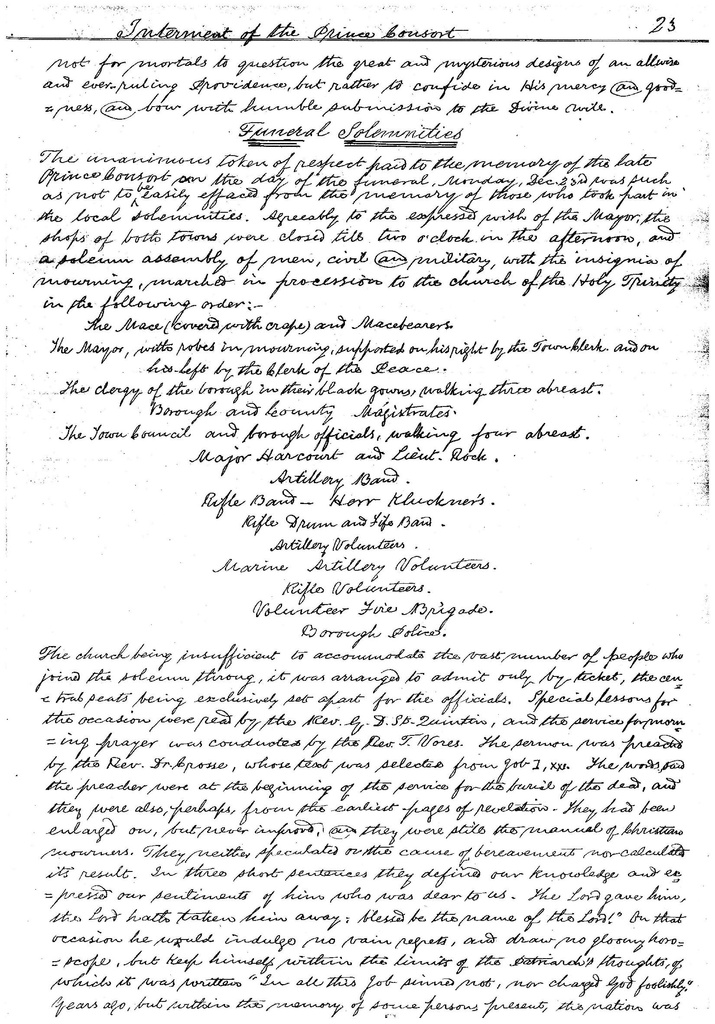 Interment of the Prince Consort 23
not for mortals to question the great and mysterious designs of an allwise
and ever-ruling Providence, but rather to confide in His mercy an good=
=ness, an bow with humble submission to the Divine will.
Funeral Solemnities
The unanimous token of respect paid to the memory of the late
Prince Consort on the day of the funeral, Monday, Dec. 23rd was such
as not to be easily effaced from the memory of those who took part in
the local solemnities. Agreeably to the expressed wish of the Mayor, the
shops of both towns were closed till two o'clock in the afternoon, and
a solemn assembly of men, civil an military, with the insignia of
mourning, marched in procession to the church of the Holy Trinity
in the following order:-
The Mace (coverd with crape) and Macebearers.
The Mayor, with robes in mourning, supported on his right by the Town Clerk and on
his left by the Clerk of the Peace.
The clergy of the borough in their black gowns, walking three abreast.
Borough and County Magistrates.
The Town Council and borough officials, walking four abreast.
Major Harcourt and Lieut. Rock.
Artillery Band.
Rifle Band - Herr Kluckner's.
Rifle Drum and Fife Band.
Artillery Volunteers.
Marine Artillery Volunteers.
Rifle Volunteers.
Volunteer Fire Brigade.
Borough Police.
The church being insufficient to accommodate the vast number of people who
joined the solemn throng, it was arranged to admit only by ticket, the cen=
=tral seats being exclusively set apart for the officials. Special lessons for
the occasion were read by the Rev. G. D. St. Quintin, and the service for morn=
=ing prayer was conducted by the Rev. T. Vores. The sermon was preached
by the Rev. Dr. Crosse, whose text was selected from Job I, xxi. The words said
the preacher were at the beginning of the service for the burial of the dead, and
they were also, perhaps, from the earliest pages of revelation. They had been
enlarged on, but never improvd, an they were still the manual of Christian
mourners. They neither speculated on the cause of bereavement nor calculated
its result. In three short sentences they defined our knowledge and ex=
=pressed our sentiments of him who was dear to us. The Lord gave him,
the Lord hath taken him away; blessed be the name of the Lord!" On that
occasion he would indulge no vain regrets, and draw no gloomy horo=
=scope, but keep himself within the limits of the Patriarch's thoughts, of
which it was written "In all this Job sinned not, nor charged God foolishly."
Years ago, but within the memory of some persons present, the nation was